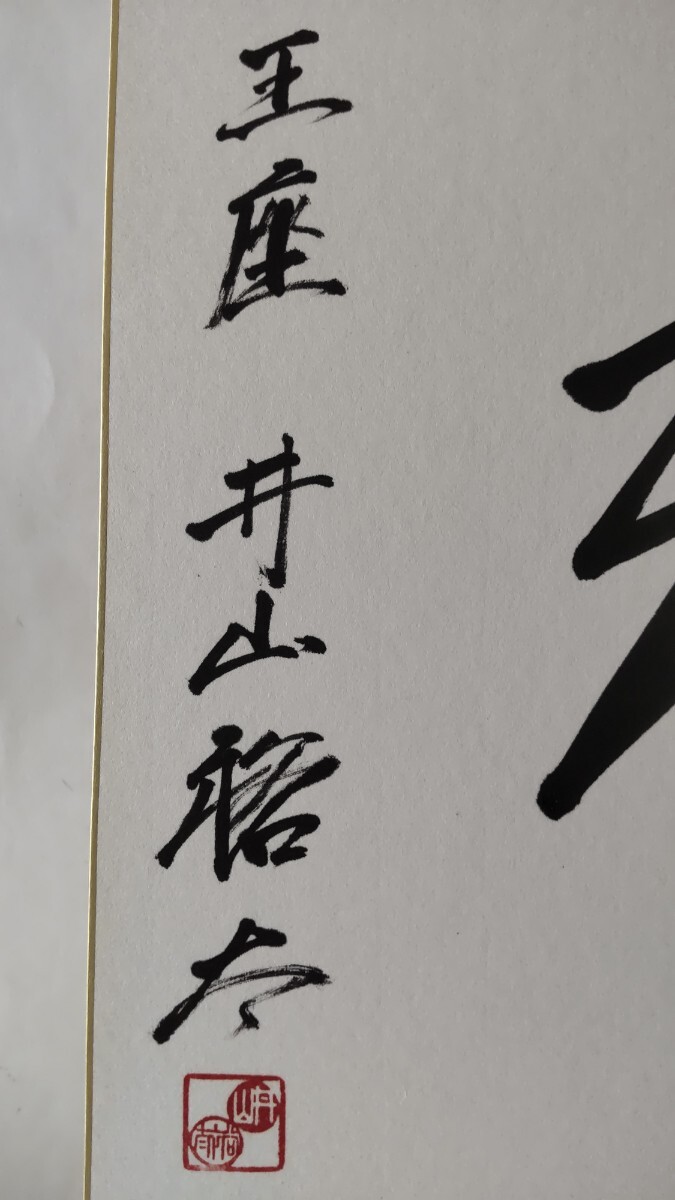 王座 井山裕太